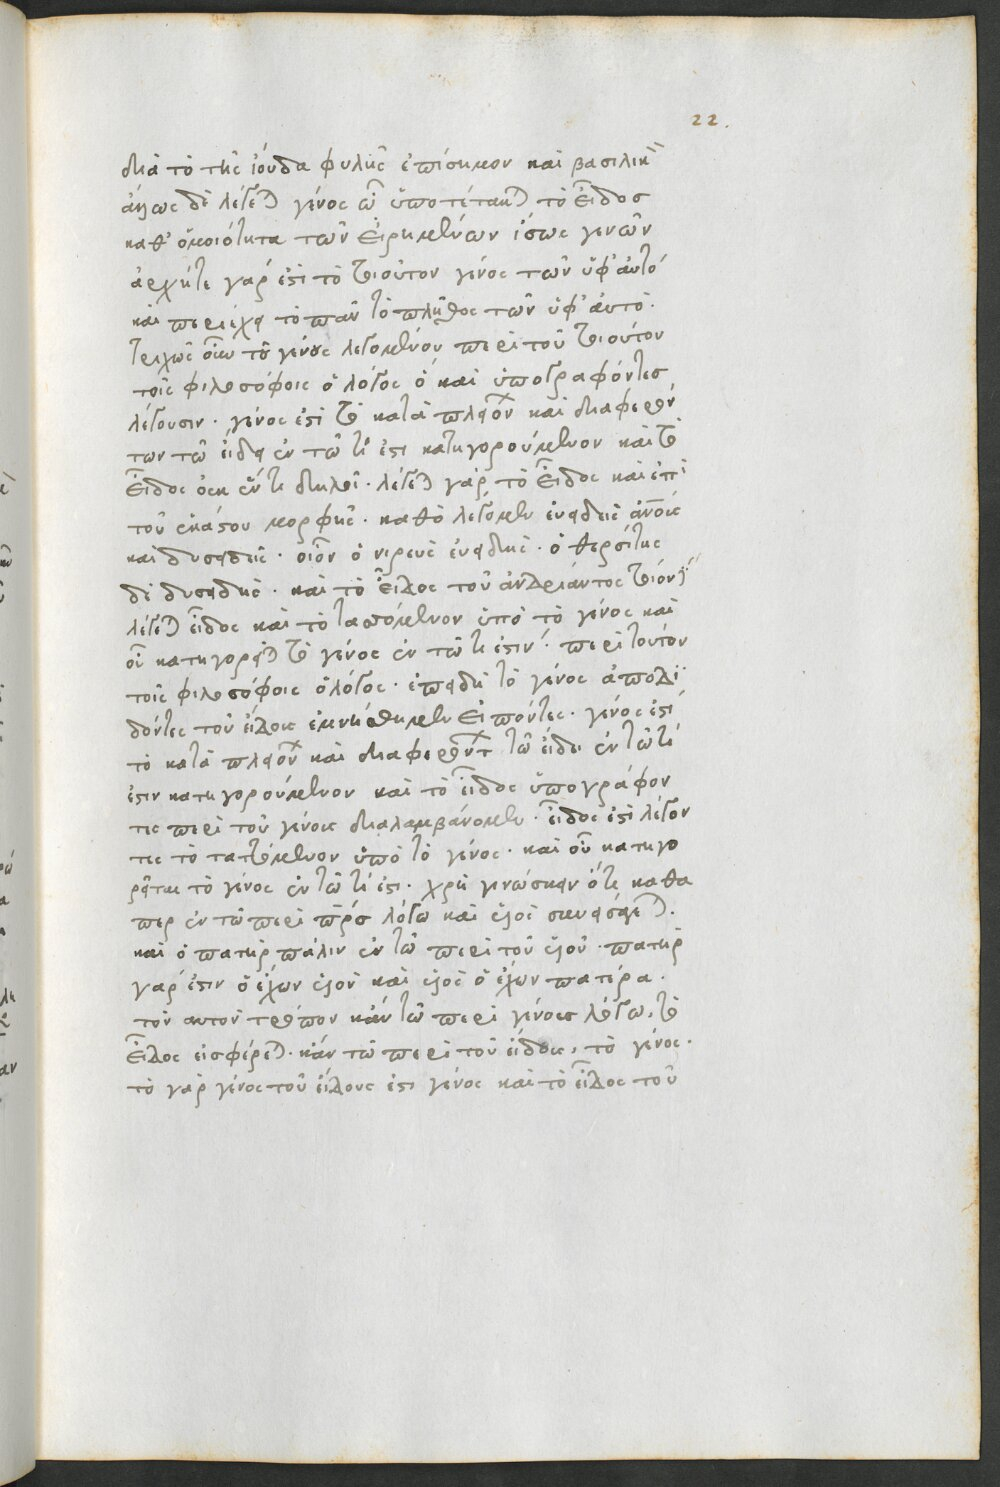 22.
διὰ τὸ τῆς ἰούδα φυλῆς ἐπίσημον καὶ βασιλικ
ἄλλως δὲ λέγεται γένος ᾧ ὑποτέταται τὸ εἶδος
καθ' ὁμοιότητα τῶν εἰρημένων ἴσως γενῶν
ἀρχή τε γάρ ἐστι τὸ τοιοῦτον γένος τῶν ὑφ' αὑτό
καὶ περιέχει τὸ πᾶν τὸ πλῆθος τῶν ὑφ' αὑτό.
τριχῶς οὖν τοῦ γένους λεγομένου περὶ τοῦ τοιούτου
τοῖς φιλοσόφοις ὁ λόγος ὃ καὶ ὑπογράφοντες
λέγουσιν · γένος ἐστὶ τὸ κατὰ πλειόνων καὶ διαφερόν
των τῷ εἴδει ἐν τῷ τί ἐστι κατηγορούμενον καὶ τὸ
εἶδος οὐκ ἕν τι δηλοῖ · λέγεται γὰρ τὸ εἶδος καὶ ἐπὶ
τοῦ ἑκάστου μορφῆς · καθὸ λέγομεν εὐειδεῖς ἀνους
καὶ δυσειδεῖς · οἷον ὁ νιρεὺς εὐειδὴς · ὁ θερσίτης
δὲ δυσειδής · καὶ τὸ εἶδος τοῦ ἀνδριάντος τοιόν
λέγεται εἶδος καὶ τὸ ταττόμενον ὑπὸ τὸ γένος καὶ
οὗ κατηγορεῖται τὸ γένος ἐν τῷ τί ἐστιν · περὶ τούτου
τοῖς φιλοσόφοις ὁ λόγος · ἐπειδὴ τὸ γένος ἀποδι
δόντες τοῦ εἴδους ἐμνήσθημεν εἰπόντες · γένος ἐστὶ
τὸ κατὰ πλειόνων καὶ διαφερόντων τῷ εἴδει ἐν τῷ τί
ἐστιν κατηγορούμενον καὶ τὸ εἶδος ὑπογράφον
τες περὶ τοῦ γένους διαλαμβάνομεν · εἶδος ἐστὶ λέγον
τες τὸ ταττόμενον ὑπὸ τὸ γένος · καὶ οὗ κατηγο
ρεῖται τὸ γένος ἐν τῷ τί ἐστι · χρὴ γινώσκειν ὅτι καθα
περ ἐν τῷ περὶ πρς λόγῳ καὶ υἱὸς συνεισάγεται.
καὶ ὁ πατὴρ πάλιν ἐν τῷ περὶ τοῦ υἱοῦ · πατὴρ
γάρ ἐστιν ὁ ἔχων υἱὸν καὶ υἱὸς ὁ ἔχων πατέρα.
τὸν αὐτὸν τρόπον κἀν τῷ περὶ γένους λόγῳ, τὸ
εἶδος εἰσφέρεται. κἀν τῷ περὶ τοῦ εἴδους, τὸ γένος.
τὸ γὰρ γένος τοῦ εἴδους ἐστὶ γένος καὶ τὸ εἶδος τοῦ